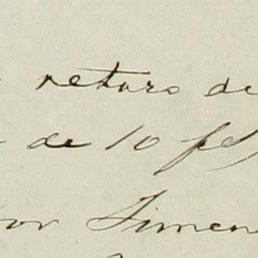 retaro de
de 10 pe
por Jimen